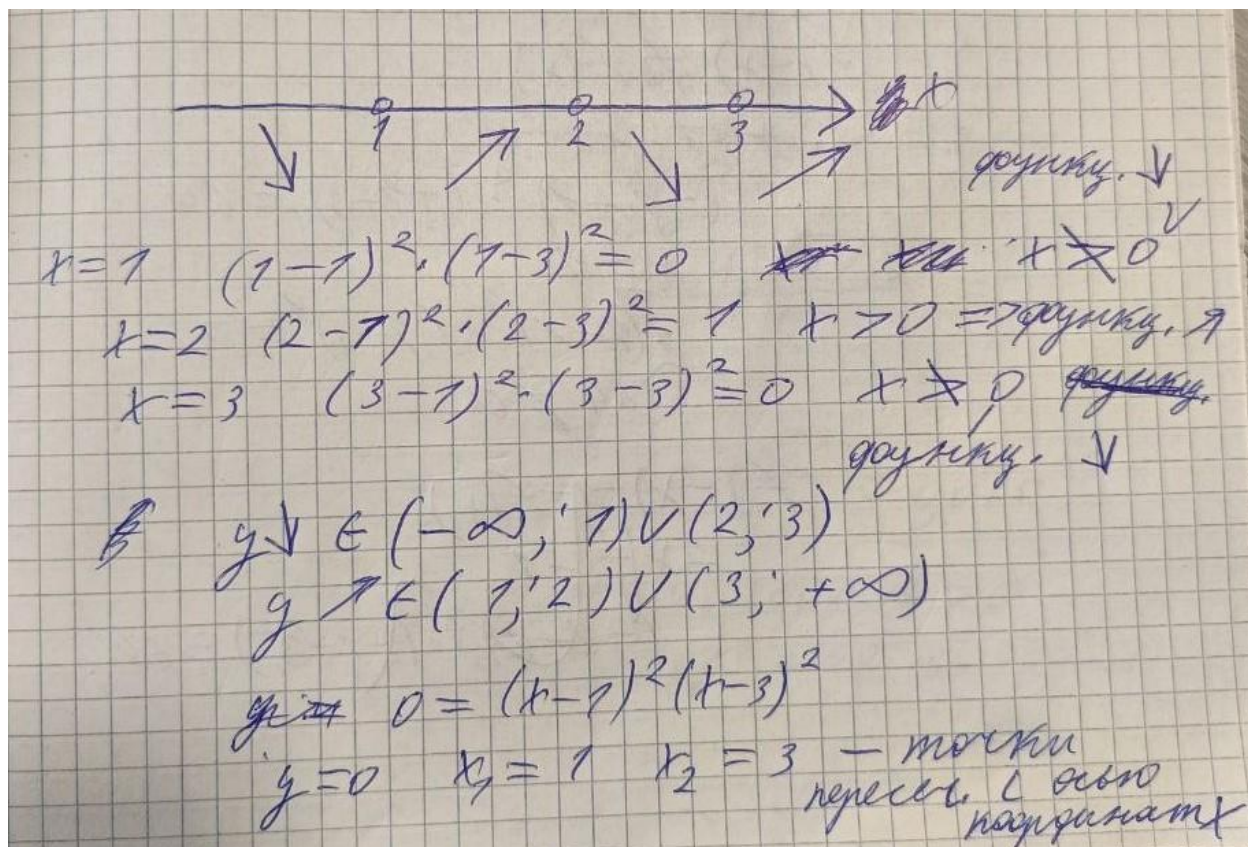 x
1 2 3
функц. ↓
x=1 (1-1)²·(1-3)²=0 x≯0
x=2 (2-1)²·(2-3)²=1 x>0 => функц. ↗
x=3 (3-1)²·(3-3)²=0 x≯0,
функц. ↓
y↓ ∈ (-∞; 1)∪(2; 3)
y↗∈(1; 2)∪(3; +∞)
0=(x-1)²(x-3)²
y=0 x₁=1 x₂=3 – точки
пересеч. с осью
координат x